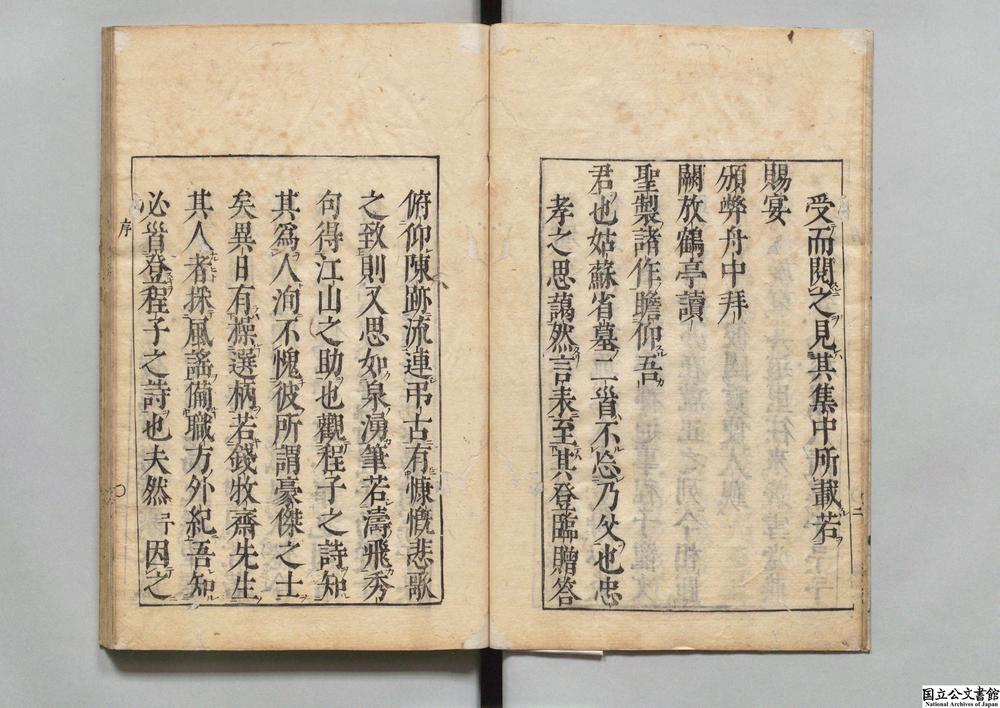 受而閱之見其集中所載若
賜宴
頒弊舟中拜
闕放鶴亭讀
聖製諸作瞻仰吾
君也姑蘇省墓二首不忘乃父也忠
孝之思藹然言表至其登臨贈答
俯仰陳跡流連弔古有慷慨悲歌
之致則又思如泉湧筆若濤飛秀
句得江山之助也觀程子之詩知
其為人洵不愧彼所謂豪傑之士
矣異日有操選柄若錢牧齋先生
其人者採風謠備職方外紀吾知
必首登程子之詩也夫然 因之
序
二
国立公文書館
National Archives of Japan